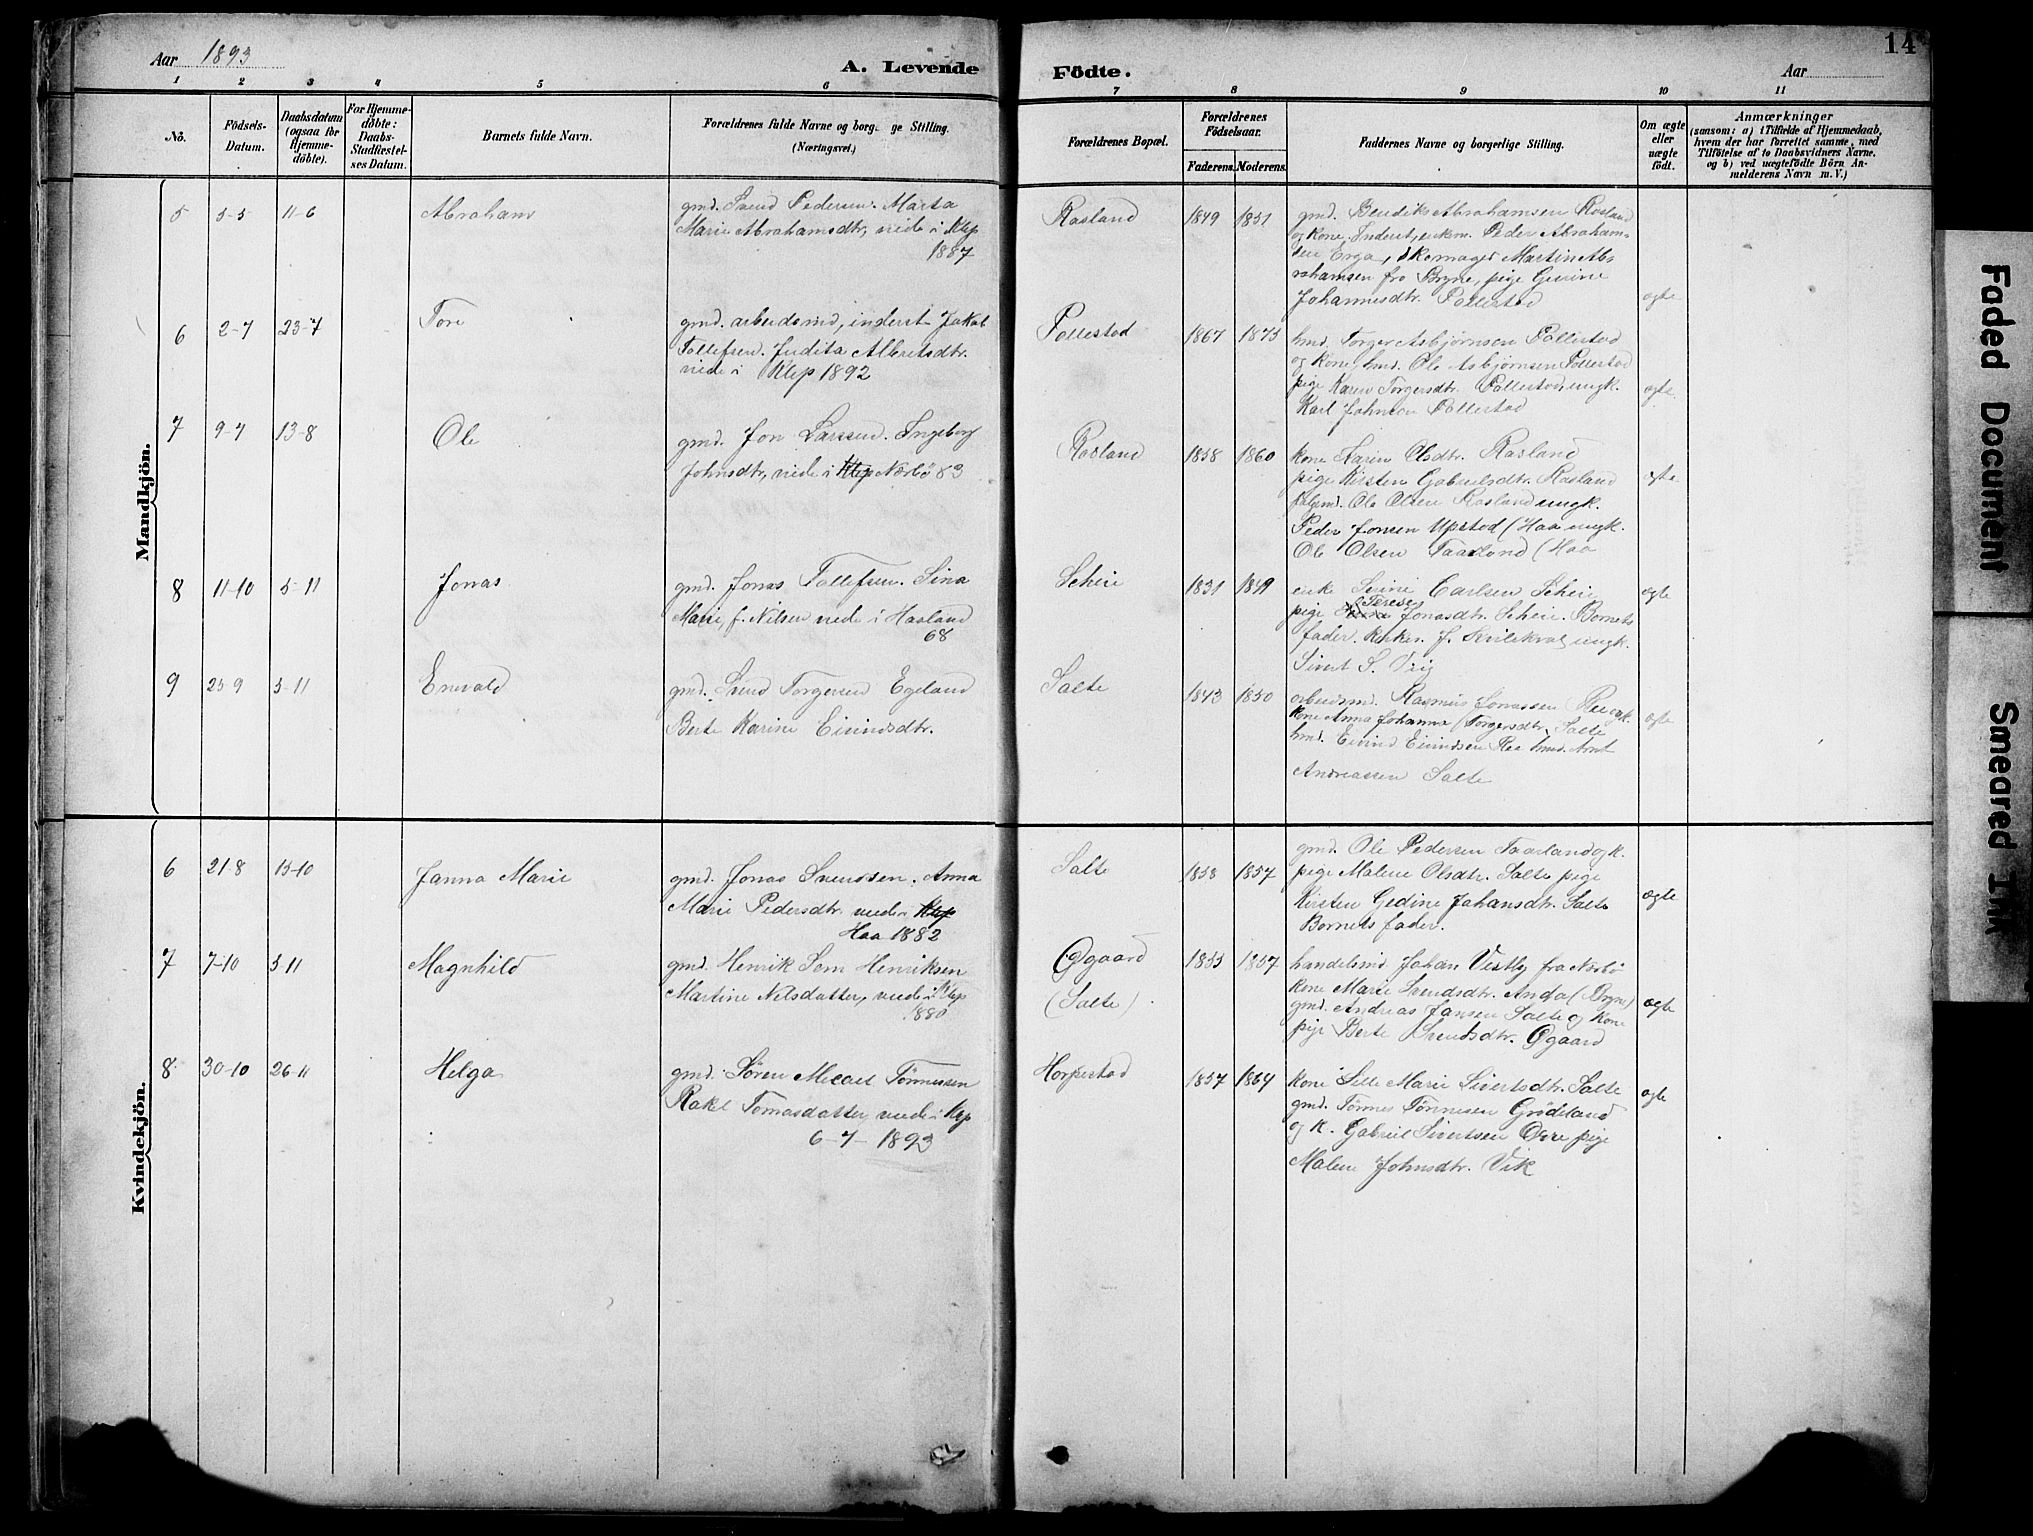 Aar 1893
A. Levende Födte.
Aar
14
1 2 3 4 5 6 7 8 9 10 11
No.
Födsels-Datum.
Daabsdatum (ogsaa for Hjemme-döbte).
For Hjemme-döbte: Daabs-Stadfæstel-ses Datum.
Barnets fulde Navn.
Forældrenes fulde Navne og borg- ge Stilling.
(Næringsvei.)
Forældrenes Bopæl.
Forældrenes Födselsaar.
Faderens. Moderens.
Faddernes Navne og borgerlige Stilling.
Om ægte eller uægte födt.
Anmærkninger
(saasom: a) i Tilfælde af Hjemmedaab, hvem der har forrettet samme, med Tilföielse af to Daabsvidners Navne, og b) ved uægtefödte Börn Anmelderens Navn m. V.)
Mandkjön.
5 5-5 11-6 Abraham
gmd. Svend Pedersen. Marta
Marie Abrahamsdtr, viede i Klep
1887
Rosland 1849 1851
gmd. Bendik Abrahamsen Rosland
og kone, Inderst, enkem. Peder Abraham-
sen Erga, skomager Martin Ab-
rahamsen fra Bryne, pige Gurine
Johannesdtr. Pollestad
ægte
6 2-7 23-7 Tore
gmd. arbeidsmd, inderst Jakob
Tollefsen. Judita Albretsdtr.
viede i Klep 1892
Pollestad 1867 1873
hmd. Torger Asbjørnsen Pollestad
og kone, hmd. Ole Asbjørnsen Pollestad
pige Karen Torgersdtr. Pollestad, ungk.
Karl Johnsen Pollestad
ægte
7 9-7 13-8 Ole
gmd. Jon Larsen. Ingeborg
Johnsdtr, viede i Klep Nærbø 83
Rosland 1858 1860
kone Karen Olsdtr. Rosland
pige Kirsten Gabrielsdtr. Rosland
Ole Olsen Rosland ungk.
Peder Jonsen Upstad (Haa ungk.
Ole Olsen Taarland (Haa
ægte
8 11-10 5-11 Jonas
gmd. Jonas Tollefsen. Sina
Marie, f. Nilsen viede i Haaland
68
Scheie 1831 1849
enke Serine Carlsen Scheie
Terese
pige Jonasdtr. Scheie. Barnets
fader. J. Kvilekval, ungk.
Sivert S. Tvig
ægte
9 25-9 5-11 Enevald
gmd. Svend Torgersen Egeland
Berte Karine Eivindsdtr.
Salte 1843 1850
arbeidsmd. Rasmus Jonassen Ree og k.
kone Anna Johanna Torgersdtr. Salte
hmd. Eivind Eivindsen Ree hmd. Arnt
Andreassen Salte
ægte
Kvindekjön.
6 21-8 15-10 Janna Marie
gmd. Jonas Svendsen. Anna
Marie Pedersdtr. viede i Klep
Haa 1882
Salte 1858 1857
gmd. Ole Pedersen Taarland og k.
pige Malene Olsdtr. Salte pige
Kirsten Gedine Johansdtr. Salte
Barnets fader.
ægte
7 7-10 5-11 Magnhild
gmd. Henrik Sem Henriksen
Martine Nelsdatter, viede i Klep
1880
Øgaard
(Salte)
1855 1857
handelsmd Johan Vestly fra Nærbø
kone Marie Svendsdtr. Anda (Bryne)
gmd. Andreas Jansen Salte og kone
pige Berte Svendsdtr. Øgaard
ægte
8 30-10 26-11 Helga
gmd. Søren Mecael Tönnessen
Rakel Tomasdatter, viede i Klep
6-7-1893
Horpestad 1857 1864
kone Sille Marie Sivertsdtr. Salte
gmd. Tønnes Tønnesen Grødeland
og k. Gabriel Sivertsen Orre pige
Malene Johnsdtr. Vik
ægte
Faded Document
Smeared Ink